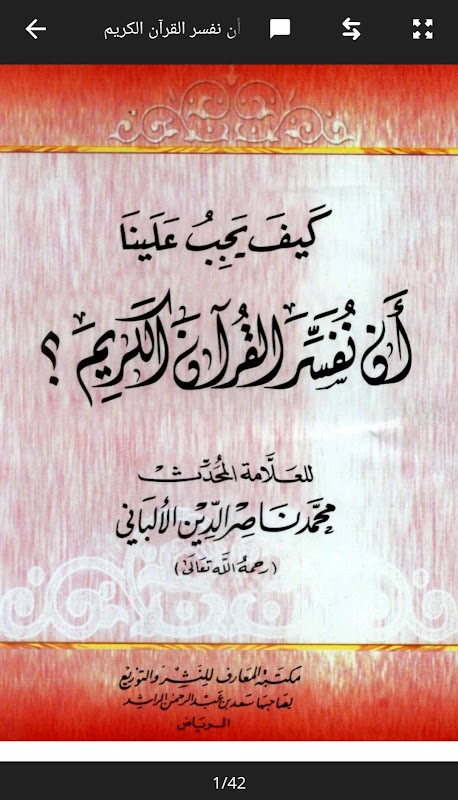 أن نفسر القرآن الكريم
كَيفَ يَجِبُ عَلَينَا
أَن نُفَسِّرَ القُرآنَ الكَرِيمَ ؟
للعلَّامة المحُدِّث
محمَّد نَاصِر الدِّين الألبَاني
(رحمهُ اللَّه تعَالىَ)
مكتبَة المعَارف للنَشِر وَالتوزيع
لصَاحبهَا سَعد بن عَبد الرحمٰن الراشِد
الريَاض
1/42